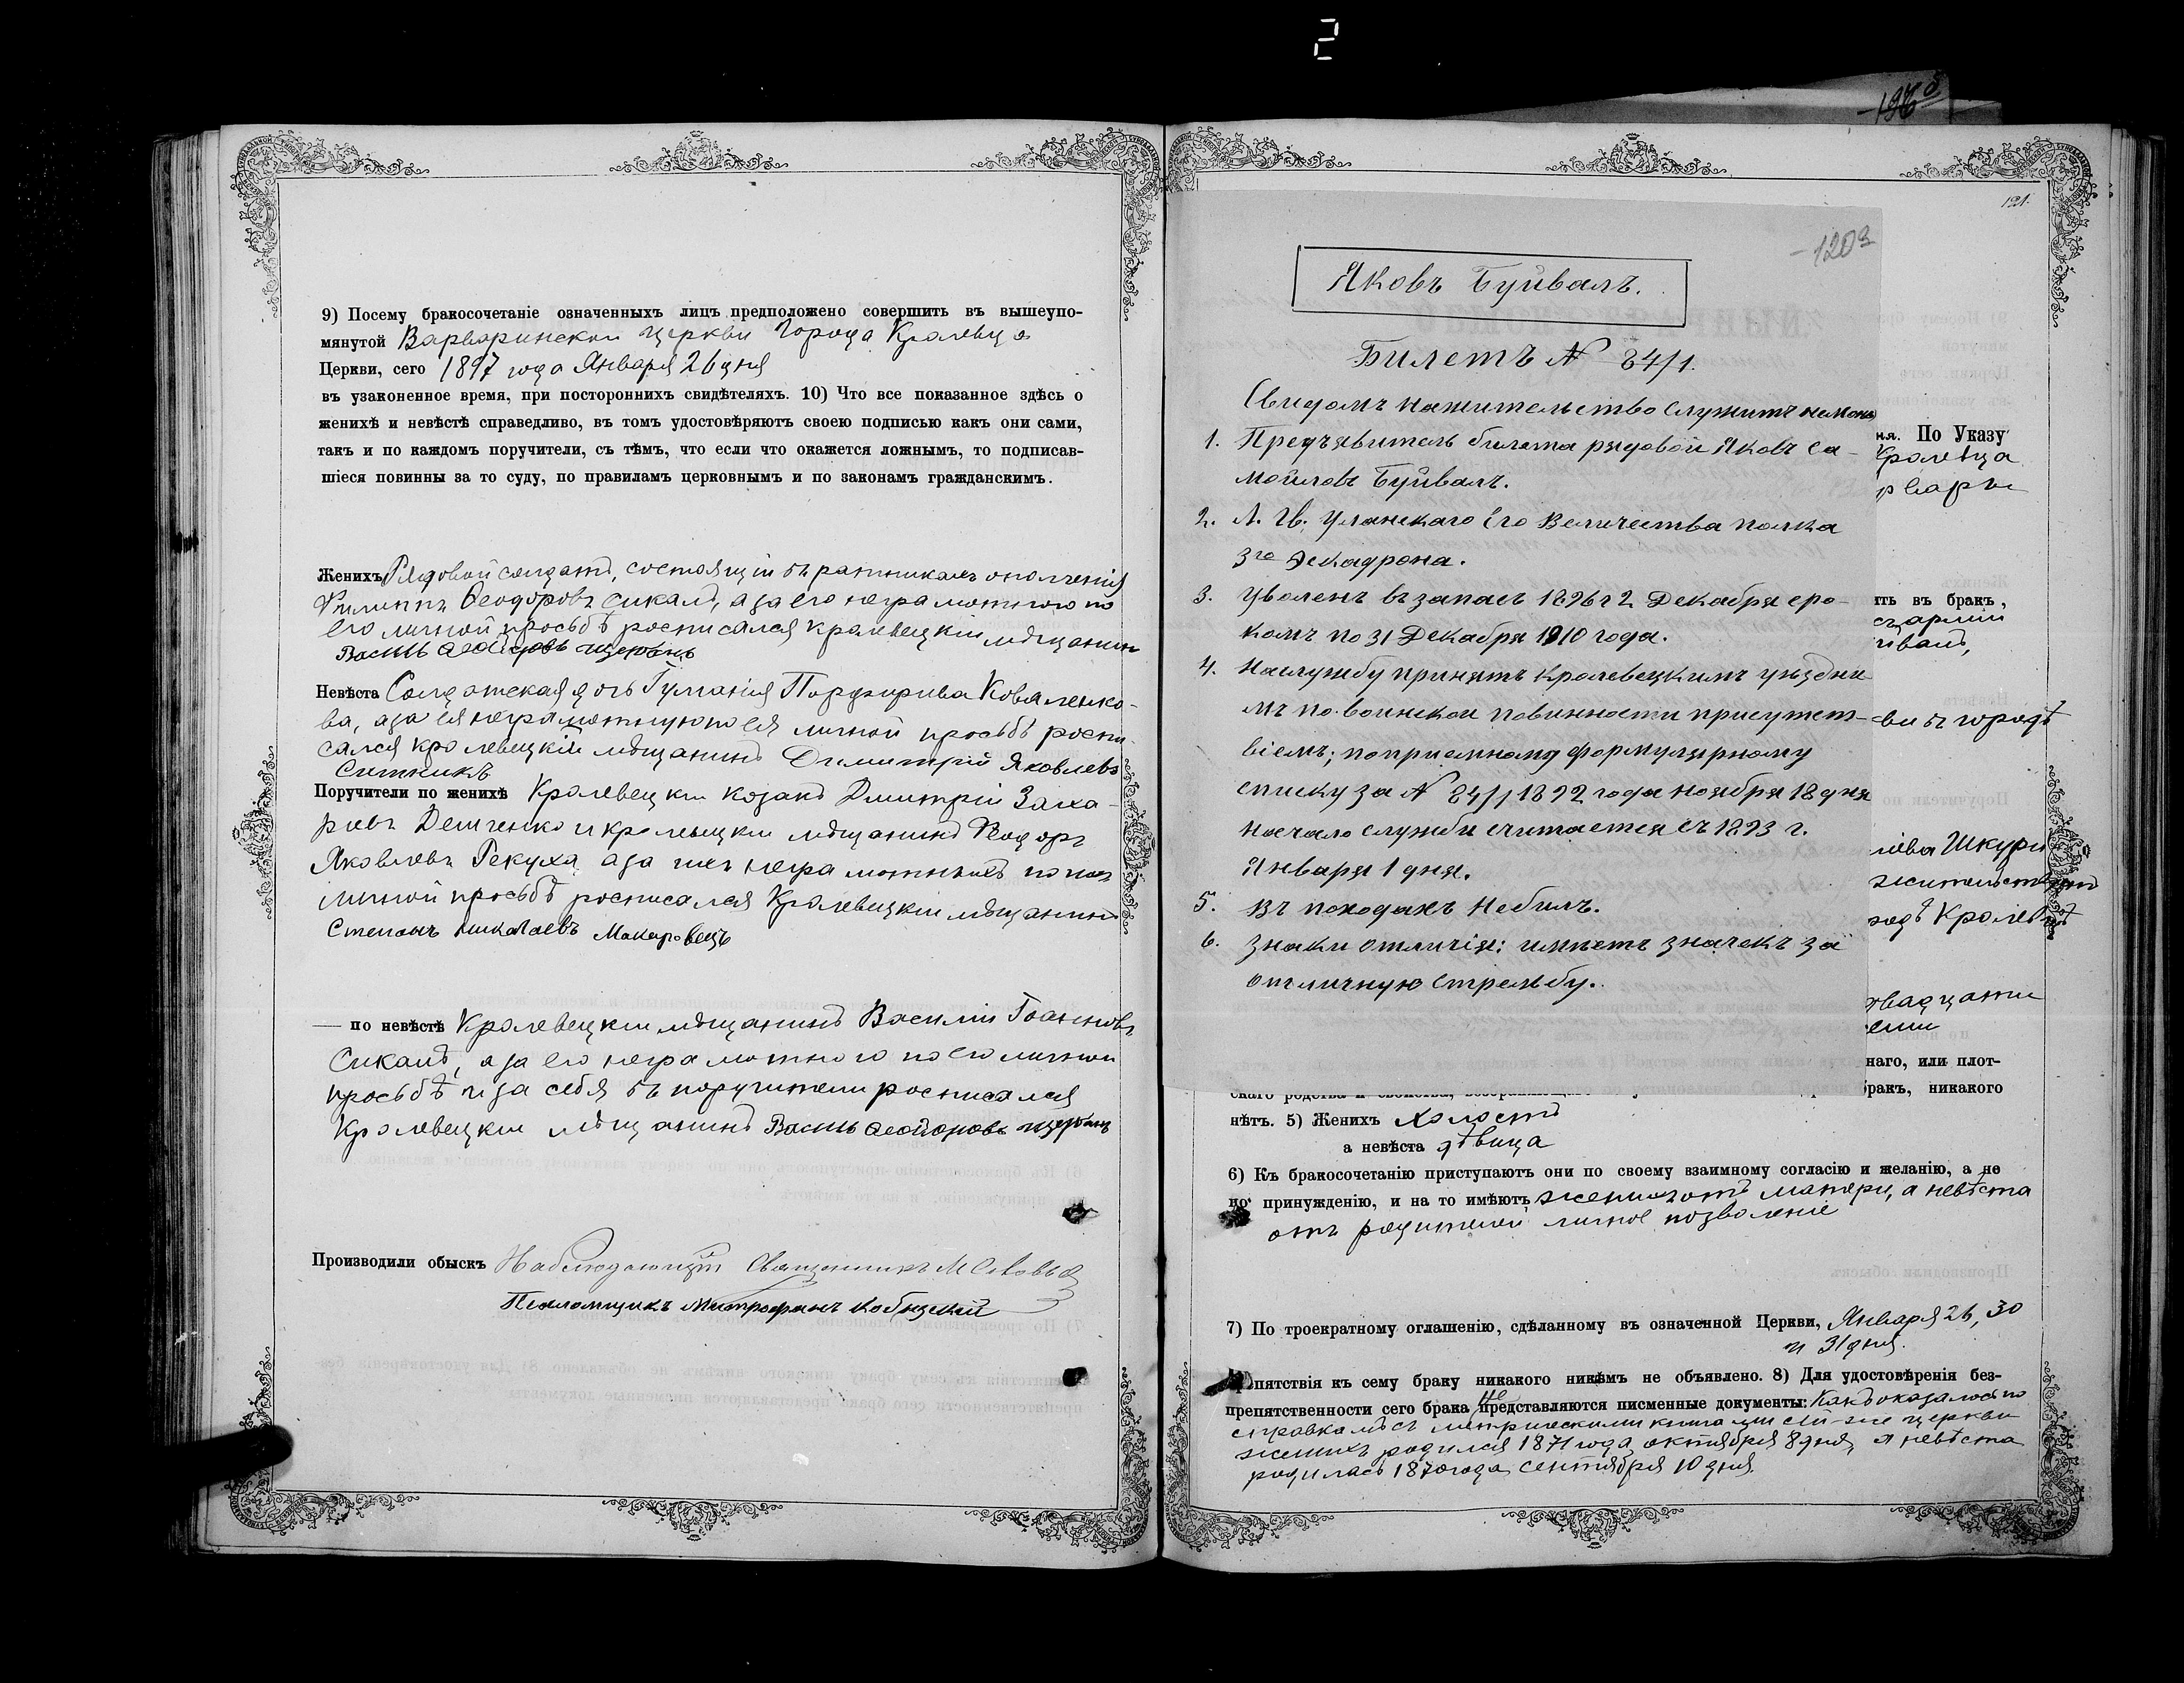 2
9) Посему бракосочетаніе означенныхъ лицъ предположено совершить въ вышеупо-
мянутой Варваринской церкви города Кролевца
Церкви, сего 1897 года Января 26 дня
въ узаконенное время, при постороннихъ свидѣтеляхъ. 10) Что все показанное здѣсь о
женихѣ и невѣстѣ справедливо, въ томъ удостовѣряютъ своею подписью какъ они сами,
такъ и по каждомъ поручители, съ тѣмъ, что если что окажется ложнымъ, то подписав-
шіеся повинны за то суду, по правиламъ церковнымъ и по законамъ гражданскимъ.
Женихъ Рядовой солдатъ, состоящій въ ратникахъ ополченія
Филиппъ Ѳеодоровъ Сикалъ, а за его неграмотного по
его личной просьбѣ росписался кролевецкій мѣщанинъ
Василь
Невѣста Солдатская дочь Гликерія Порфирива Коваленко-
ва, а за ея неграмотную по ея личной просьбѣ роспи-
сался кролевецкій мѣщанинъ Димитрій Яковлевъ
Ситникъ
Поручители по женихѣ Кролевецкій козакъ Дмитрій Заха-
ріевъ Демченко и кролевецкій мѣщанинъ Ѳеодоръ
Яковлевъ Рекуха, а за ихъ неграмотныхъ по ихъ
личной просьбѣ росписался Кролевецкій мѣщанинъ
Степанъ Николаевъ Макаровецъ
— по невѣстѣ Кролевецкій мѣщанинъ Василій Іоанновъ
Сикалъ, а за его неграмотного по его личной
просьбѣ и за себя въ поручители росписался
Кролевецкій мѣщанинъ Василь
Производили обыскъ Наблюдающій Священникъ М
Псаломщикъ Митрофанъ
121.
-1203
Яковъ Буйвалъ.
Билетъ № 84/1.
Свидомъ на жительство служить не
1. Предъявитель билета рядовой Яковъ Са-
мойловъ Буйвалъ.
2. Л. Гв. Уланскаго Его Величества полка
3го Эскадрона.
3. Уволенъ въ запасъ 1896 г 2 Декабря сро-
комъ по 31 Декабря 1910 года.
4. На службу принятъ Кролевецкимъ уѣздны-
мъ по воинской повинности присутст-
віемъ; по приемному формулярному
списку за № 84/1 1892 года ноября 18 дня
начало службы считается съ 1893 г.
Января 1 дня.
5. Въ походахъ не былъ.
6. Знаки отличія: имѣетъ значекъ за
отличную стрельбу.
ня. По Указу
Кролевца
рвары
ить въ бракъ,
армии
йвалъ,
ви въ городѣ
Шкури
жительство
родѣ Кролевцѣ
двадцати
семи
наго, или плот-
бракъ, никакого
нѣтъ. 5) Женихъ холостъ
а невѣста дѣвица
6) Къ бракосочетанію приступаютъ они по своему взаимному согласію и желанію, а не
по принужденію, и на то имѣютъ женихъ отъ матери, а невѣста
отъ родителей личное позволеніе
7) По троекратному оглашенію, сдѣланному въ означенной Церкви, Января 26, 30
и 31 дня.
препятствія къ сему браку никакого никѣмъ не объявлено. 8) Для удостовѣренія без-
препятственности сего брака не представляются писменные документы: Какъ оказалось по
справкамъ съ метрическими книгами сей-же церкви
женихъ родился 1871 года октября 8 дня, а невѣста
родилась 1870 года сентября 10 дня.